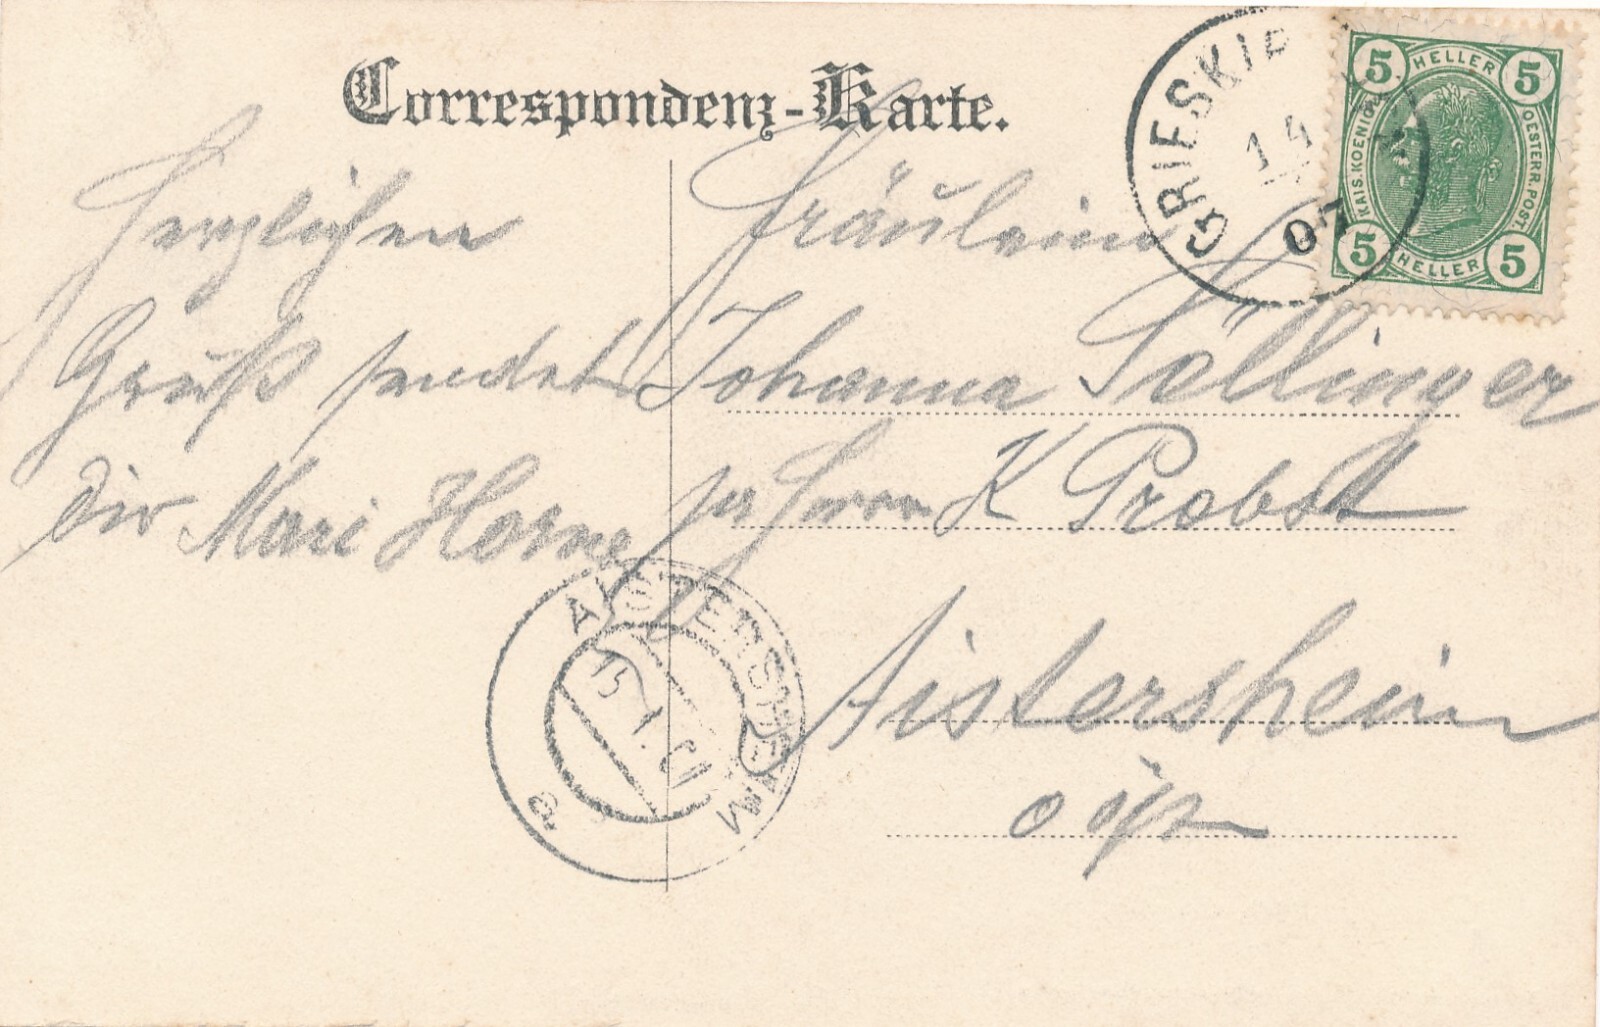 Correspondenz-Karte.
Herzlichen
Gruß sendet
dir Mari
Fräulein
Johanna Söllinger
pr Herrn K Probst
Aistersheim
GRIESKIR
14
07
5 HELLER 5
KAIS. KOENIGL. OESTERR. POST.
5 HELLER 5
AISTERSHEIM
15 1
a